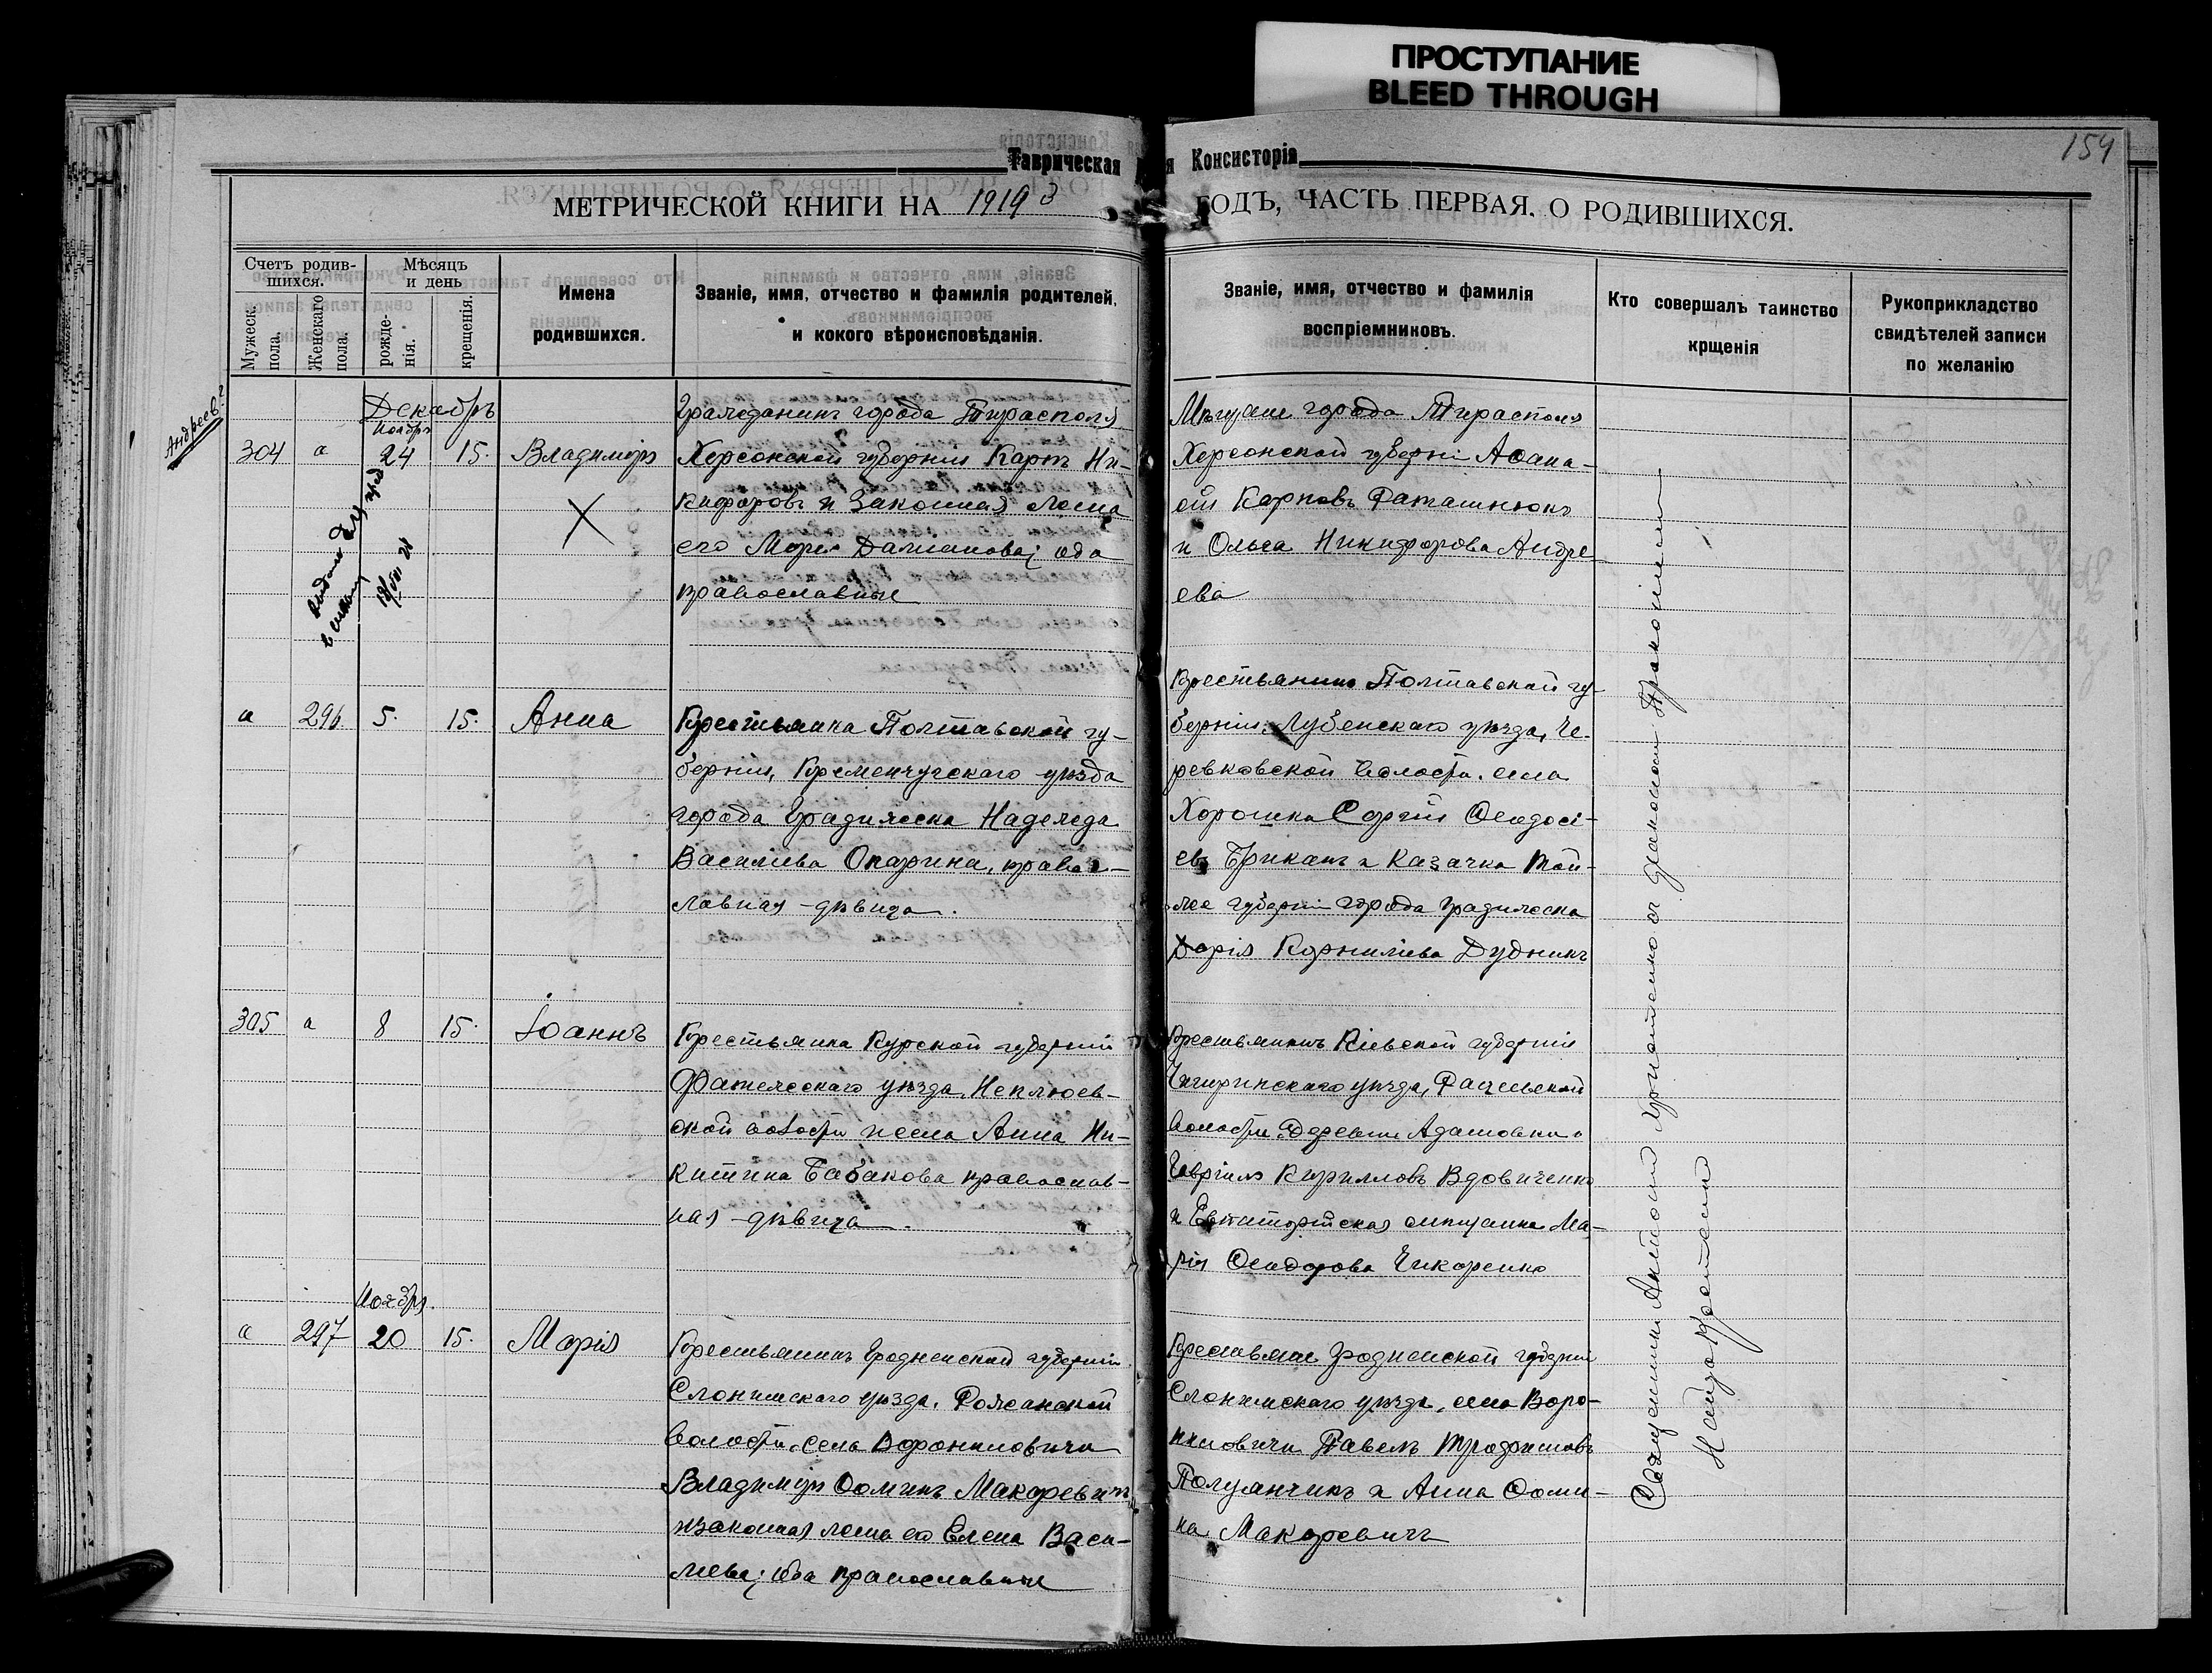 ПРОСТУПАНИЕ
BLEED THROUGH
154
Таврическая Консисторія
МЕТРИЧЕСКОЙ КНИГИ НА 1919 3 ГОДЪ, ЧАСТЬ ПЕРВАЯ, О РОДИВШИХСЯ.
Счетъ родив-
шихся.
Мужеск. пола.
Женскаго пола.
Мѣсяцъ
и день
рожде-
нія.
крещенія.
Имена
родившихся.
Званіе, имя, отчество и фамилія родителей,
и кокого вѣроисповѣданія.
Званіе, имя, отчество и фамилія
воспріемниковъ.
Кто совершалъ таинство
крщенія
Рукоприкладство
свидѣтелей записи
по желанію
Андреев?
Декабрь
Ноябрь
304 а 24 15. Владиміръ
Гражданинъ города Тирасполя
Херсонской губерніи Карпъ Ни-
кифоровъ и законная жена
его Марія Даміанова; оба
православные
Мѣщане города Тирасполя
Херсонской губерніи Аѳана-
сій Карповъ Фаташнюкъ
и Ольга Никифорова Андре
ева
а 296 5. 15. Анна
Крестьянка Полтавской гу-
берніи, Кременчугскаго уѣзда
города Градижска Надежда
Василіева Опарина, правос-
лавная - дѣвица.
Крестьянинъ Полтавской гу-
берніи Лубенскаго уѣзда, Че-
ревковской волости села
Хорошка Сергій Ѳеодосі-
евъ Брикатъ и Казачка той-
же губерніи города Градижска
Дарія Корниліева Дудникъ
305 а 8 15. Іоаннъ
Крестьянка Курской губерніи
Фатежскаго уѣзда, Неплюев-
ской волости и села Анна Ни-
китина Бабакова православ-
ная - дѣвица.
Крестьянинъ Кіевской губерніи
Чигиринскаго уѣзда, волости деревни Адамовки
Гавріилъ Кирилловъ Вдовиченко
и Евпаторійская мѣщанка Ма-
рія Ѳеодорова Чикаренко
Ноябрь.
а 297 20 15. Марія
Крестьянинъ Гродненской губерніи
Слонимскаго уѣзда, Рожанской
волости села Воронковичи
Владиміръ Ѳоминъ Макаревичъ
и законная жена его Елена Васи-
ліева; оба православные
Крестьяне Гродненской губерніи
Слонимскаго уѣзда, села Воро-
ниловичи Павелъ Трофимовъ
Полуянчикъ и Анна Ѳоми-
на Макаревичъ
Священникъ Антоній съ діакономъ